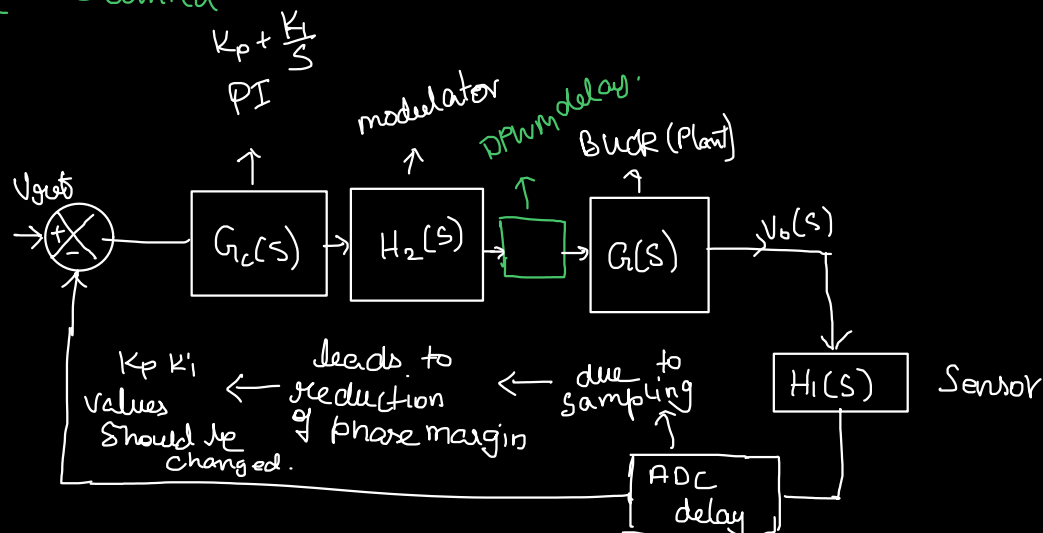 Kp + K1/S
PI
modulator
DPWM delay.
BUCK (Plant)
+
-
Gc(S)
H2(S)
G(S)
Vo(S)
H1(S)
Sensor
ADC
delay
due to
sampling
leads to
reduction
of phase margin
Kp Ki
values
should be
changed.